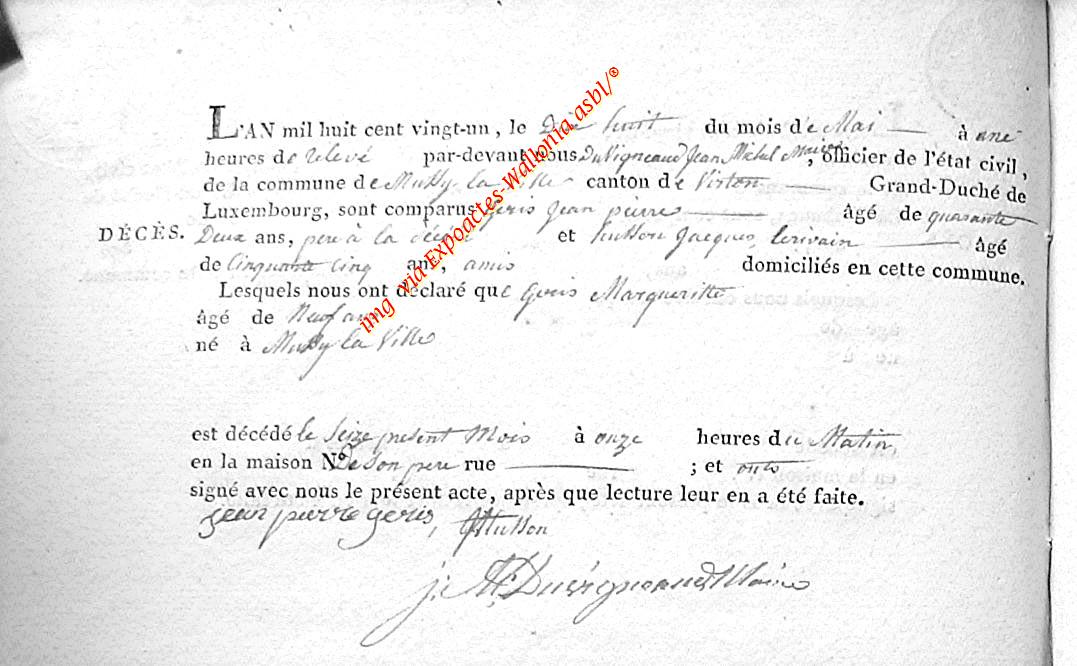 L'AN mil huit cent vingt-un, le Dix huit du mois de Mai à une
heures de relevé par-devant nous Duvigneaud Jean Michel Maire, officier de l'état civil,
de la commune de Mussy la Ville canton de Virton Grand-Duché de
Luxembourg, sont comparus Geris Jean pierre âgé de quarante
DÉCÈS. Deux ans, pere à la et husson Jacques, Ecrivain âgé
de Cinquante Cinq ans, amis domiciliés en cette commune.
Lesquels nous ont déclaré que Geris Margueritte
âgé de Neuf ans
né à Mussy la Ville
est décédé le Seize present Mois à onze heures du Matin
en la maison N.º De Son pere rue ; et onts
signé avec nous le présent acte, après que lecture leur en a été faite.
jean pierre geris, JHusson
j. M. Duvigneaud Maire
img via Expoactes-Wallonia asbl/®